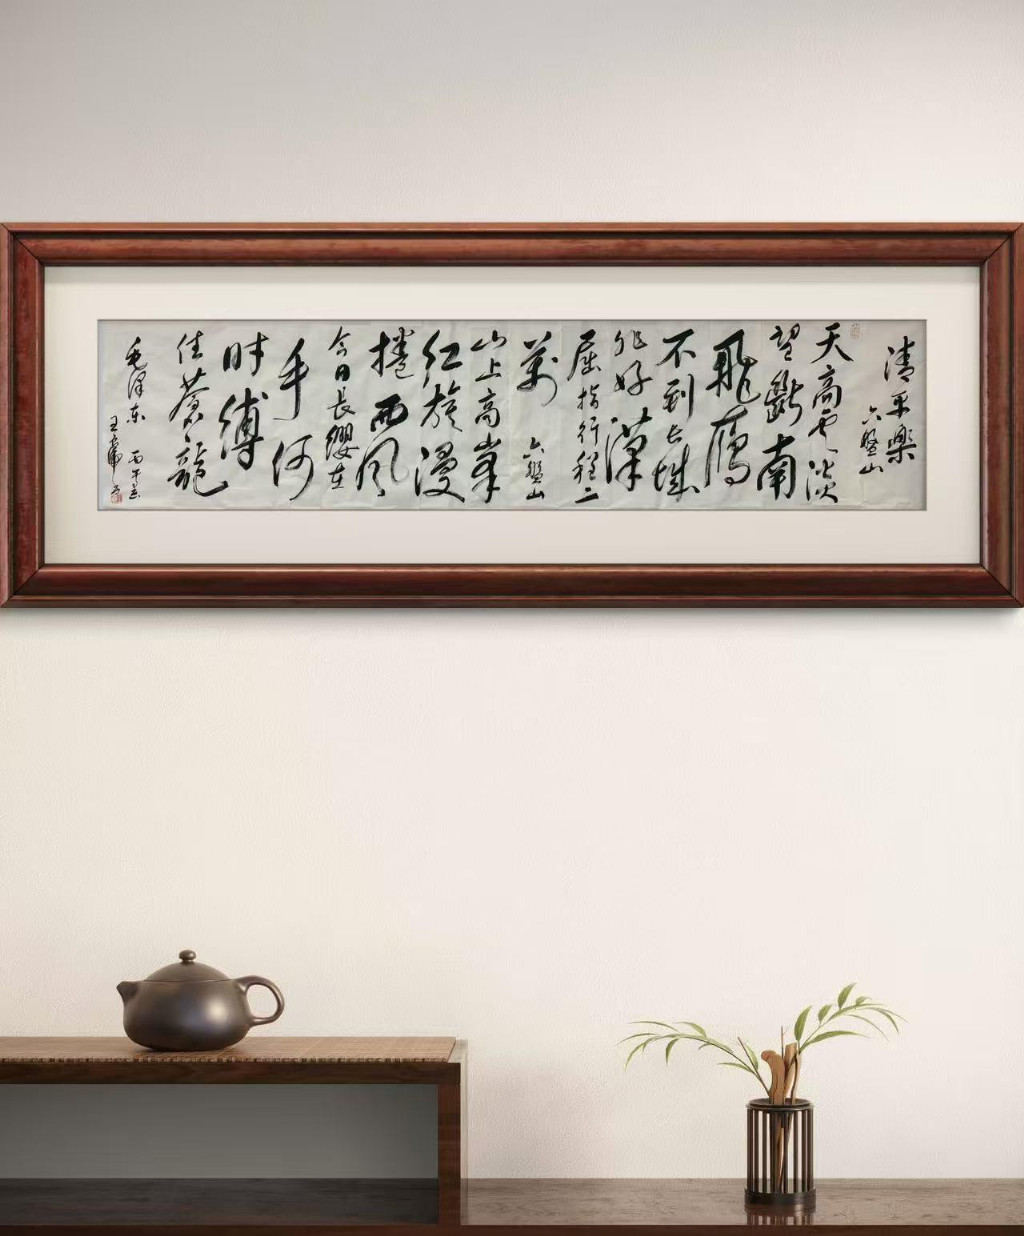 清平樂
六盤山
天高雲淡
望斷南
飛鴈
不到長城
非好漢
屈指行程二
萬
六盤山
山上高峯
紅旗漫
捲西風
今日長纓在
手何
时縛
住蒼龍
毛澤东
丙午
王